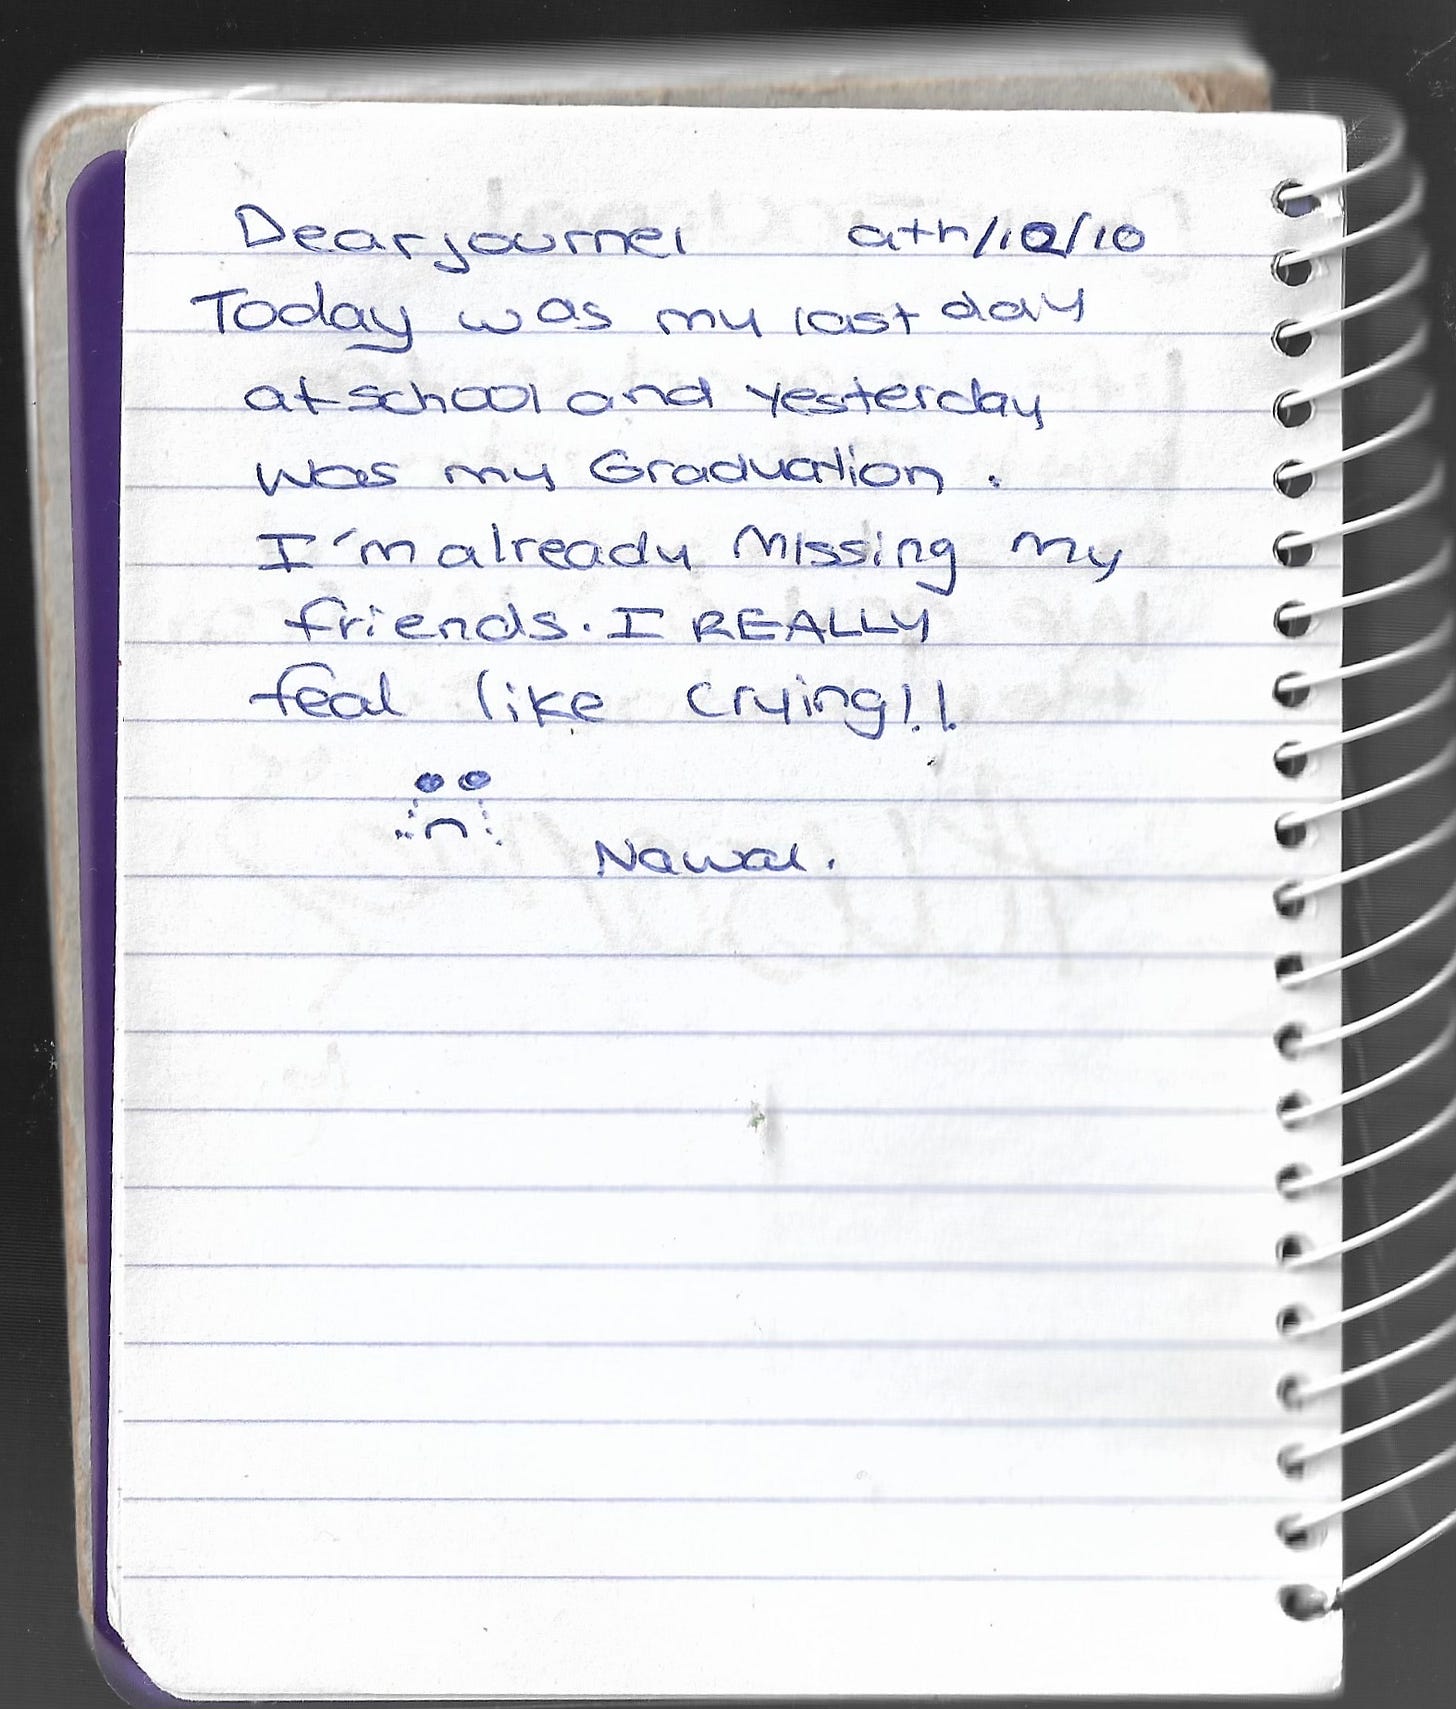 Dear journel 9th/12/10
Today was my last day
at school and yesterday
was my Graduation.
I'm already Missing my
friends. I REALLY
feal like crying!!
Nawal.